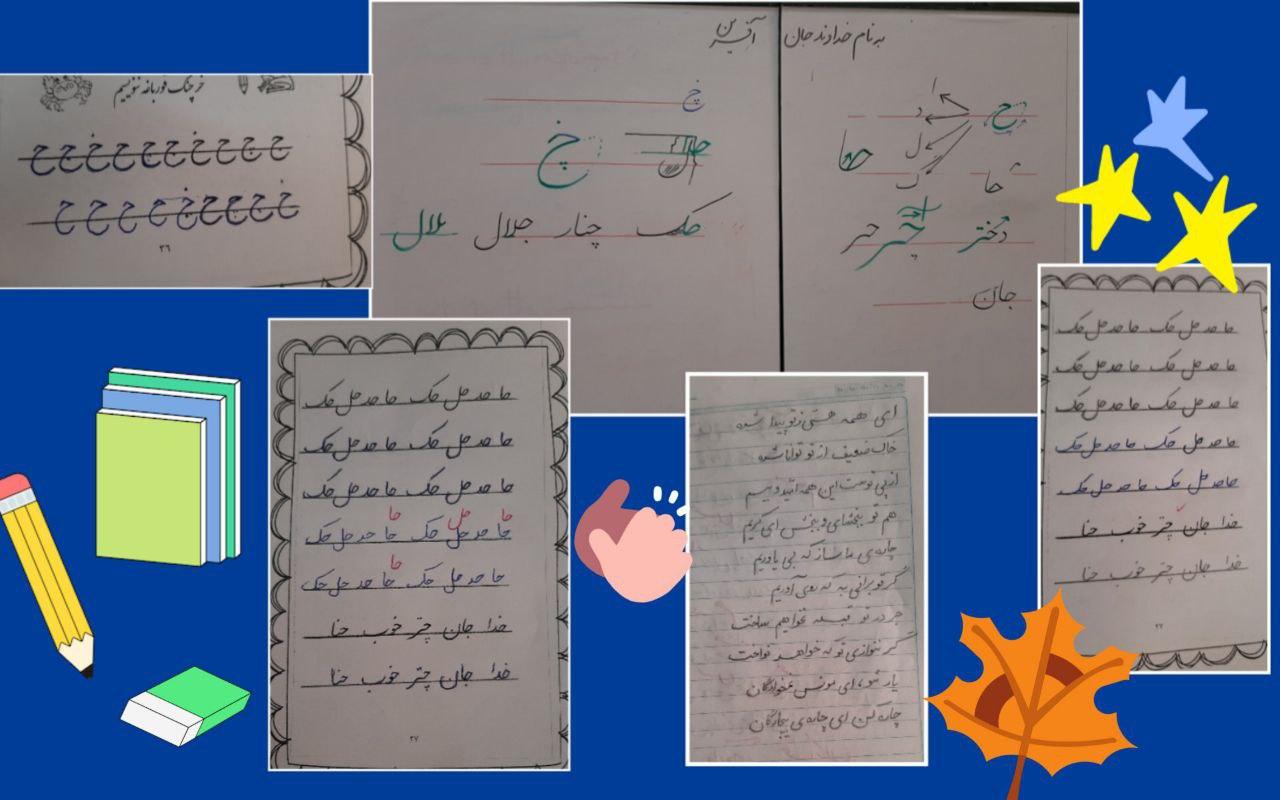 خرچنگ قورباغه ننویسیم
۲۶
به نام خداوند جان
آفرین
ا
د
ل
ک
حا
دختر
چتر
جان
خ
حک چنار جلال بلال
حا حد حل حک حا حد حل حک
حا حد حل حک حا حد حل حک
حا حد حل حک حا حد حل حک
حا حد حل حک حا حد حل حک
حا حد حل حک حا حد حل حک
خدا جان چتر خوب حنا
خدا جان چتر خوب حنا
۲۷
ای همه هستی ز تو پیدا شده
خاک ضعیف از تو توانا شده
از پی توست این همه امید و بیم
هم تو ببخشای و ببخش ای کریم
چاره‌ی ما ساز که بی یاوریم
گر تو برانی به که روی آوریم
جز در تو قبله نخواهیم ساخت
گر ننوازی تو که خواهد نواخت
یار شو، ای مونس غمخوارگان
چاره کن ای چاره‌ی بیچارگان
حا حد حل حک حا حد حل حک
حا حد حل حک حا حد حل حک
حا حد حل حک حا حد حل حک
حا حد حل حک حا حد حل حک
حا حد حل حک حا حد حل حک
خدا جان چتر خوب حنا
خدا جان چتر خوب حنا
۲۷